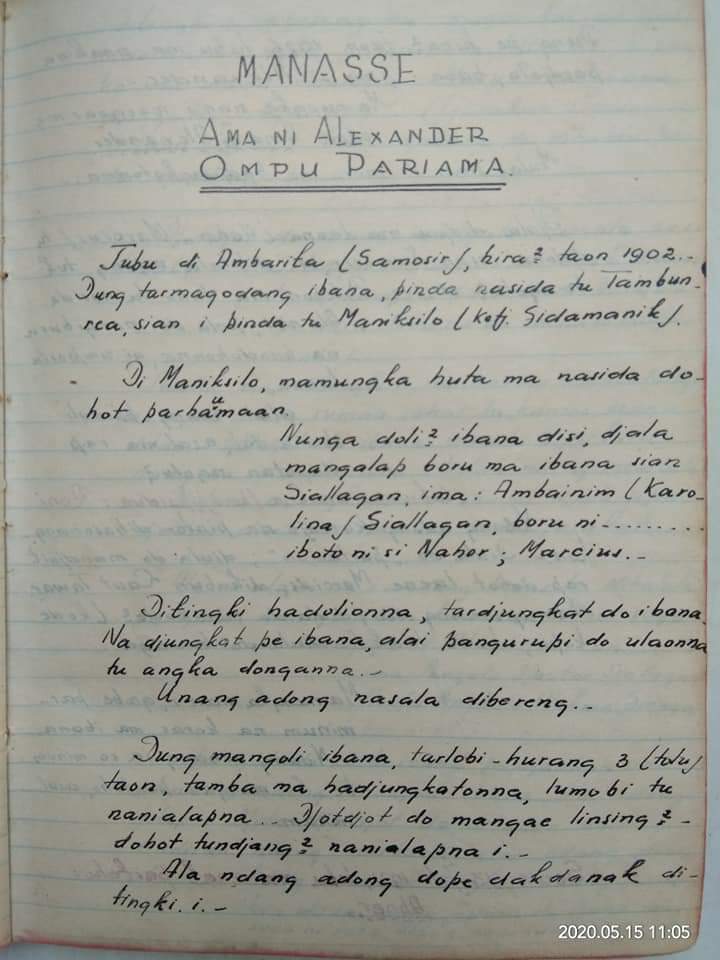 MANASSE
AMA NI ALEXANDER
OMPU PARIAMA.
Tubu di Ambarita (Samosir), hira² taon 1902.-
Dung tarmagodang ibana, pinda nasida tu Tambun-
rea, sian i pinda tu Maniksilo (Ketj. Sidamanik).
- Di Maniksilo, mamungka huta ma nasida do-
hot parhaumaan.
Nunga doli² ibana disi, djala
mangalap boru ma ibana sian
Siallagan, ima: Ambainim (Karo-
lina) Siallagan, boru ni.........
iboto ni si Nahor; Marcius.-
Ditingki hadolionna, tardjungkat do ibana.
Na djungkat pe ibana, alai pangurupi do ulaonna
tu angka donganna.-
Unang adong nasala dibereng.-
Dung mangoli ibana, tarlobi-hurang 3 (tolu)
taon, tamba ma hadjungkatonna, lumobi tu
nanialapna.. Djotdjot do mangae linsing²-
dohot tundjang² nanialapna i.-
Ala ndang adong dope dakdanak di-
tingki.i.-
2020.05.15 11:05